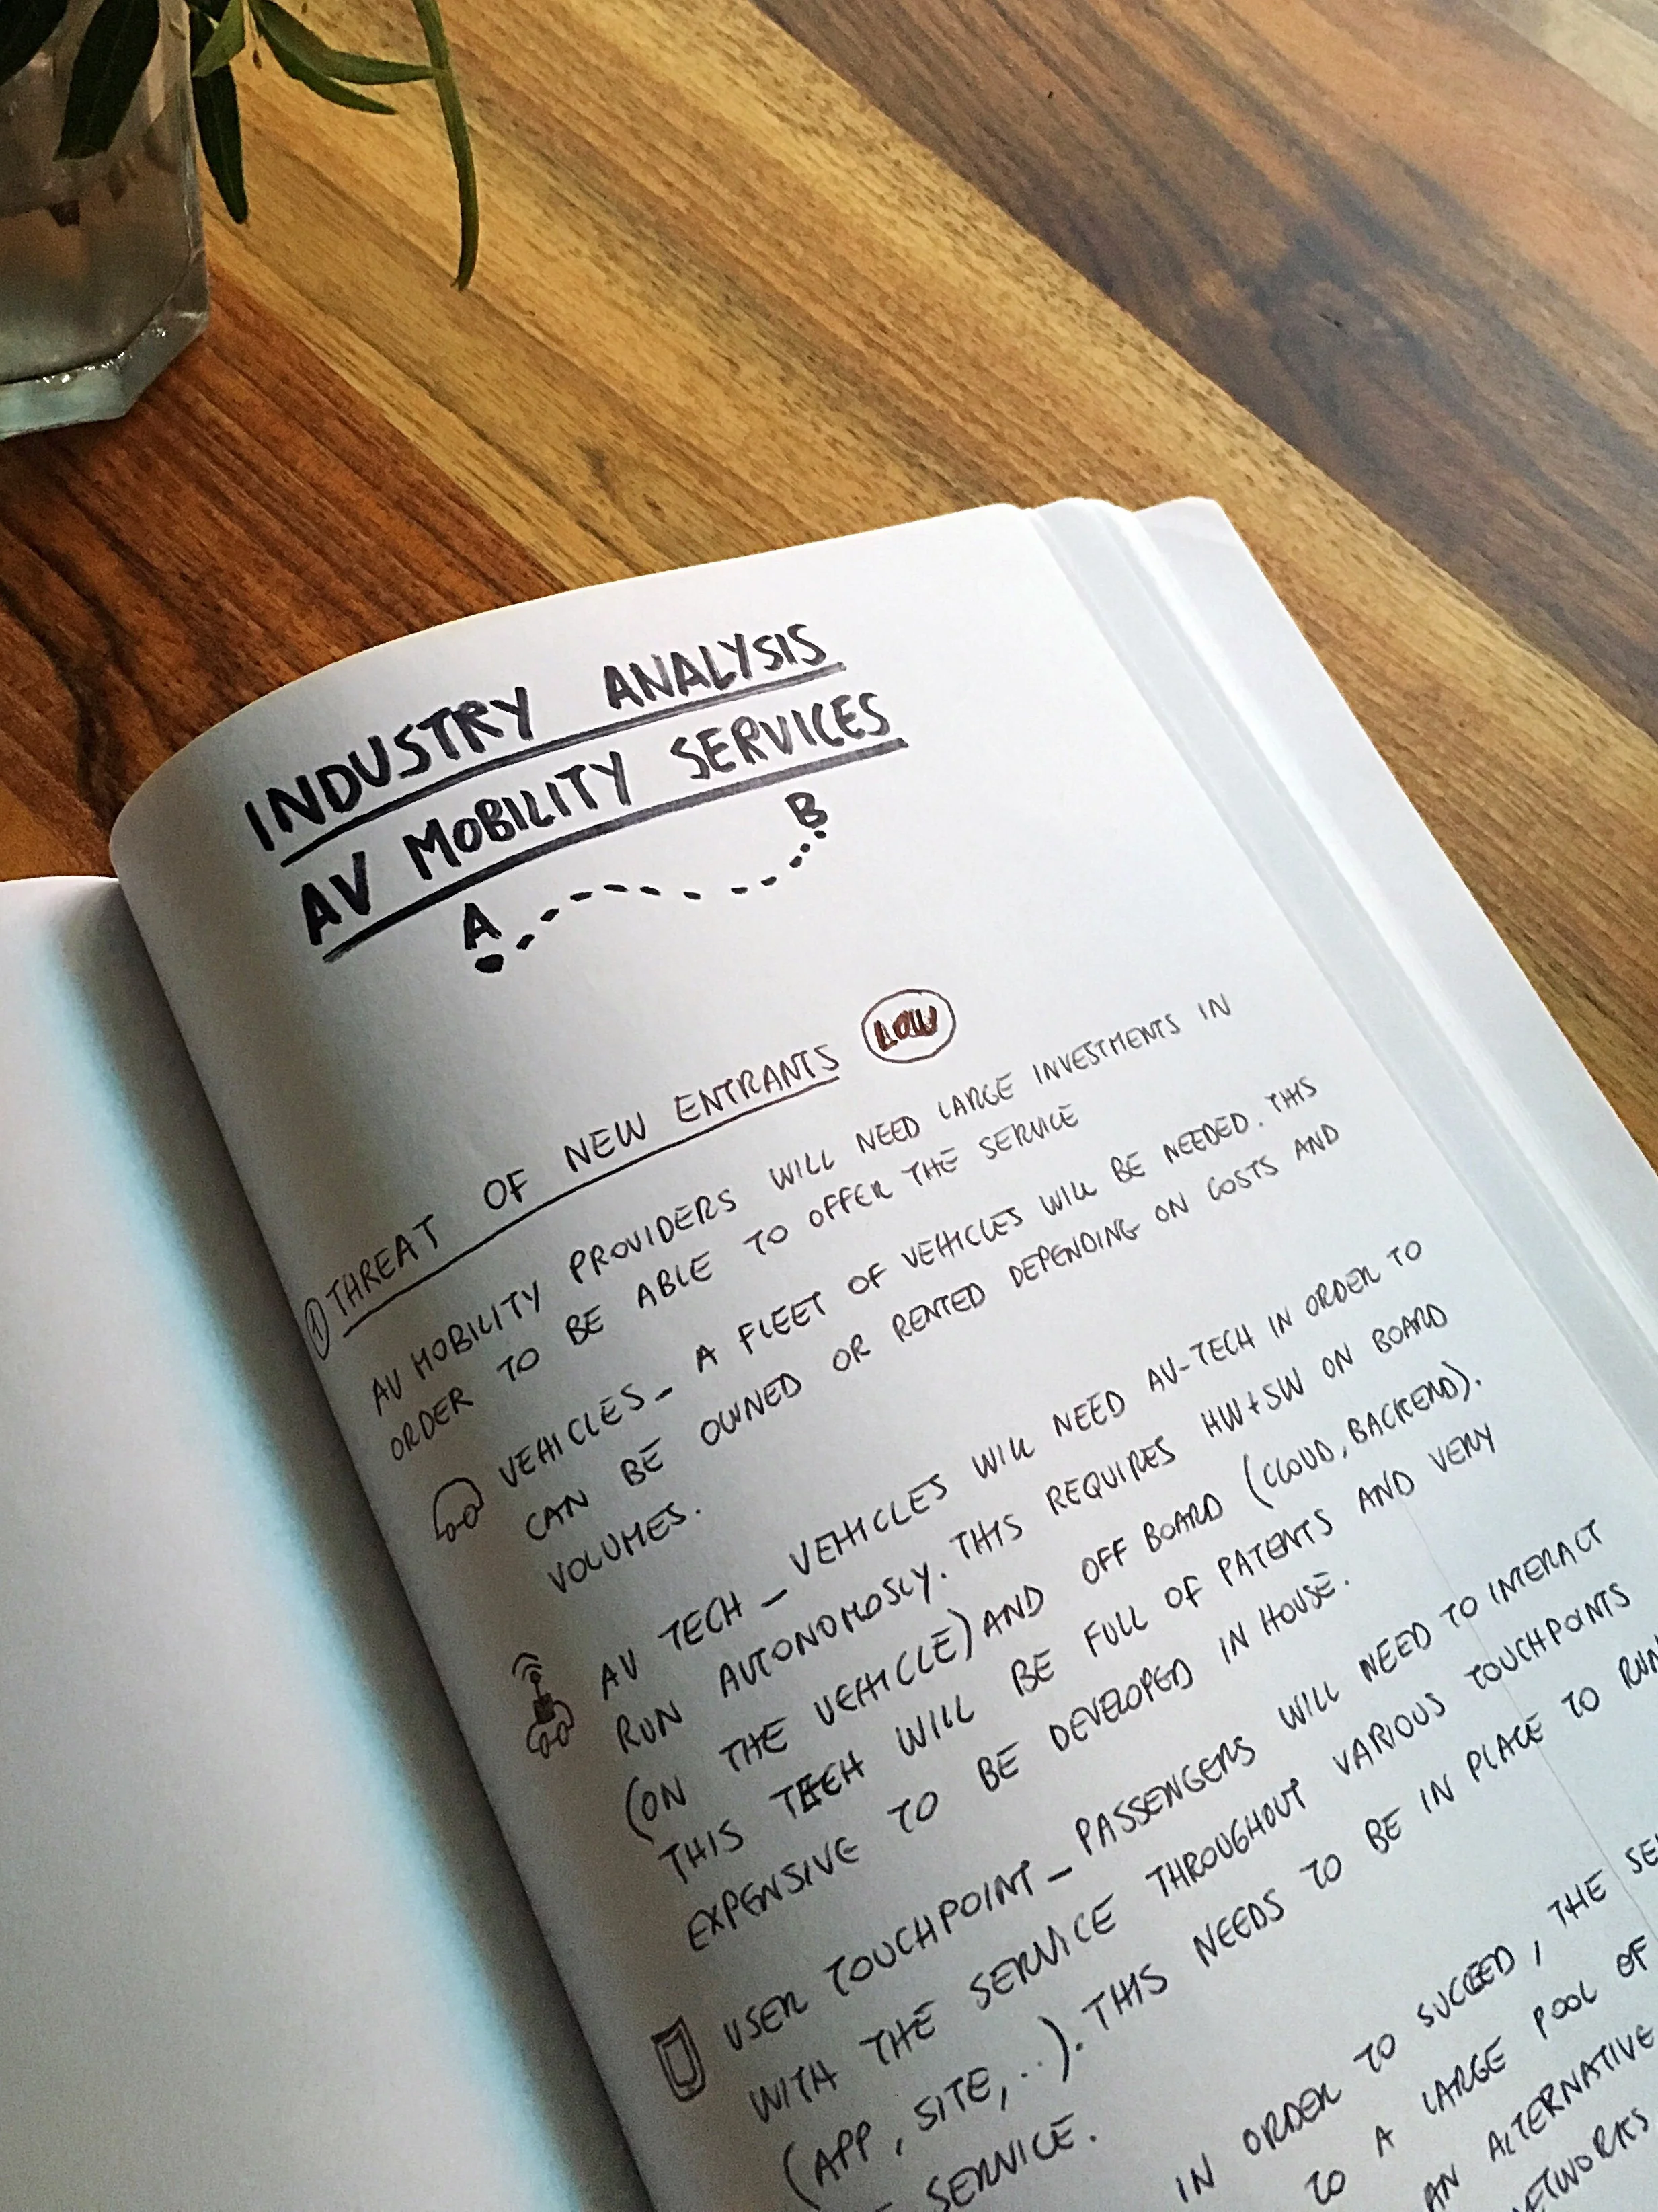 INDUSTRY ANALYSIS
AV MOBILITY SERVICES
A
B
① THREAT OF NEW ENTRANTS LOW
AV MOBILITY PROVIDERS WILL NEED LARGE INVESTMENTS IN
ORDER TO BE ABLE TO OFFER THE SERVICE
VEHICLES_ A FLEET OF VEHICLES WILL BE NEEDED. THIS
CAN BE OWNED OR RENTED DEPENDING ON COSTS AND
VOLUMES.
AV TECH_ VEHICLES WILL NEED AV-TECH IN ORDER TO
RUN AUTONOMOSLY. THIS REQUIRES HW+SW ON BOARD
(ON THE VEHICLE) AND OFF BOARD (CLOUD, BACKEND).
THIS TECH WILL BE FULL OF PATENTS AND VERY
EXPENSIVE TO BE DEVELOPED IN HOUSE.
USER TOUCHPOINT_ PASSENGERS WILL NEED TO INTERACT
WITH THE SERVICE THROUGHOUT VARIOUS TOUCHPOINTS
(APP, SITE,..). THIS NEEDS TO BE IN PLACE TO RUN
SERVICE.
IN ORDER TO SUCCEED, THE
TO A LARGE POOL OF
AN ALTERNATIVE